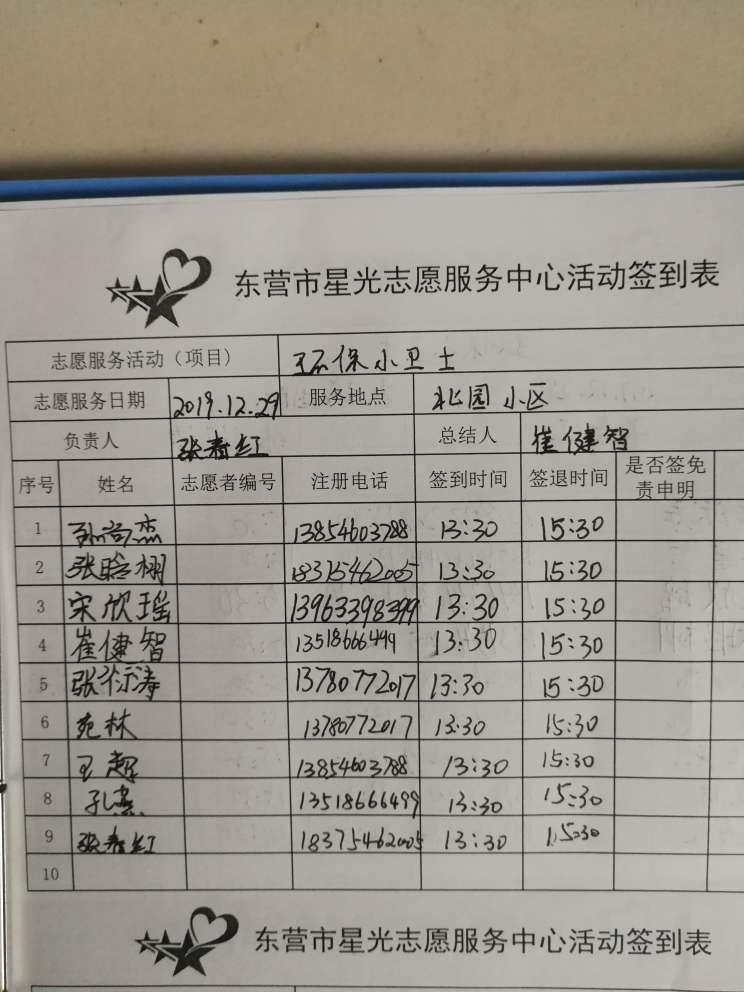 东营市星光志愿服务中心活动签到表
志愿服务活动（项目） 环保小卫士
志愿服务日期 2019.12.29 服务地点 北园小区
负责人 张春红 总结人 崔健智
序号 姓名 志愿者编号 注册电话 签到时间 签退时间 是否签免责申明
1 孙尚杰 13854603788 13:30 15:30
2 张晗栩 18315462005 13:30 15:30
3 宋欣瑶 13963398399 13:30 15:30
4 崔健智 13518666499 13:30 15:30
5 张标涛 13780772017 13:30 15:30
6 苑林 13780772017 13:30 15:30
7 王超 13854603788 13:30 15:30
8 孔燕 13518666499 13:30 15:30
9 张春红 18375462005 13:30 15:30
10
东营市星光志愿服务中心活动签到表